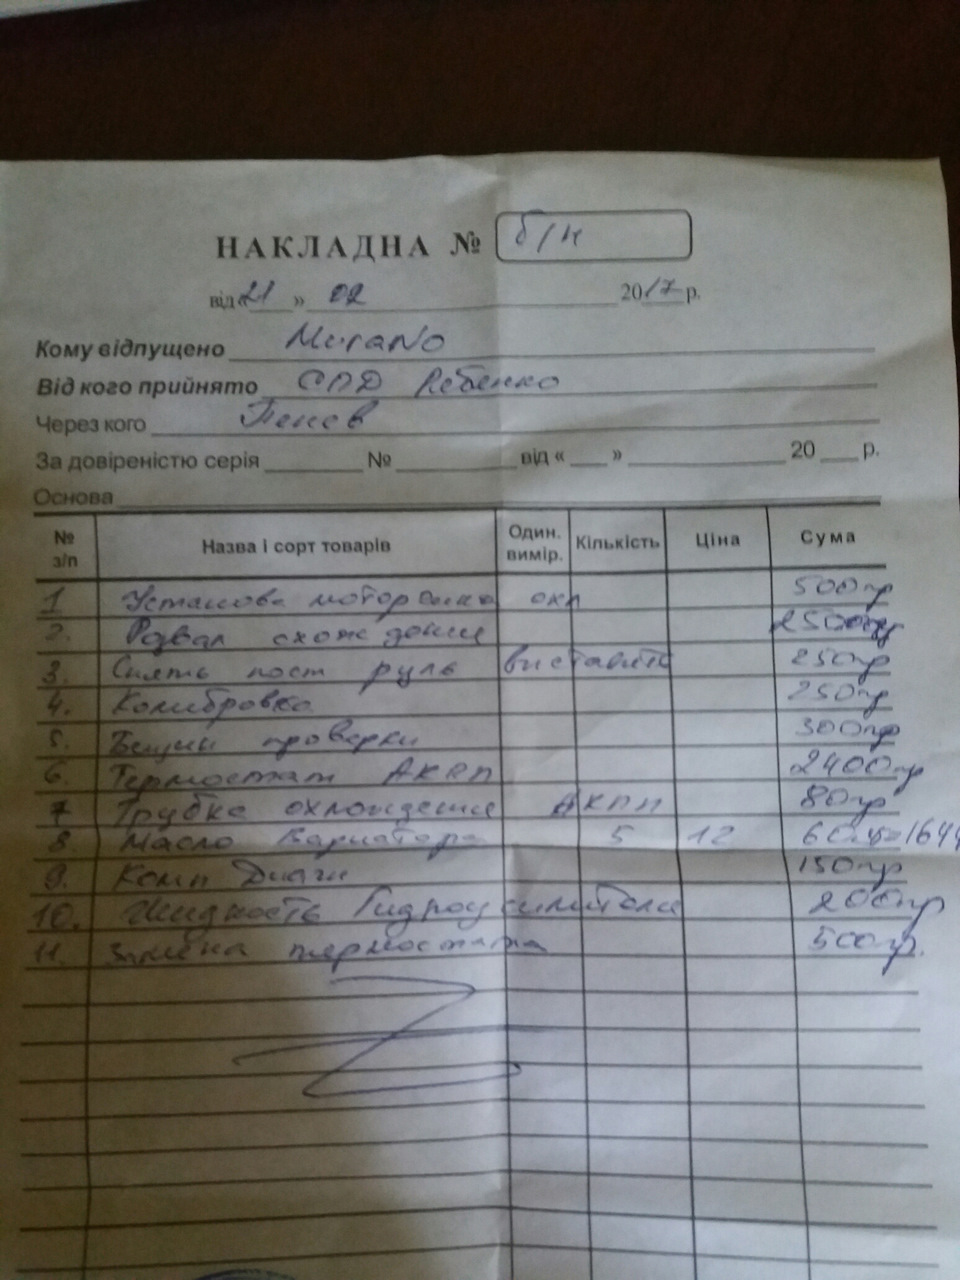 НАКЛАДНА № б/н
від «21» 02 2017 р.
Кому відпущено Murano
Від кого прийнято СПД Рябенко
Через кого Пенев
За довіреністю серія № від « » 20 р.
Основа
№ з/п Назва і сорт товарів Один. вимір. Кількість Ціна Сума
1 Установка моторчика охл 500гр
2. Розвал схождения
3. Снять пост руль виставить 250гр
4. Колибровка 250гр
5. проверки 300гр
6. Термостат АКПП 2400гр
7 Трубка охлаждения АКПП 80гр
8 Масло Вариатора 5 12 60 =1644
9. Комп Диагн 150гр
10. Жидкость Гидроусилителя 200гр
11. Замена термостата 500гр.